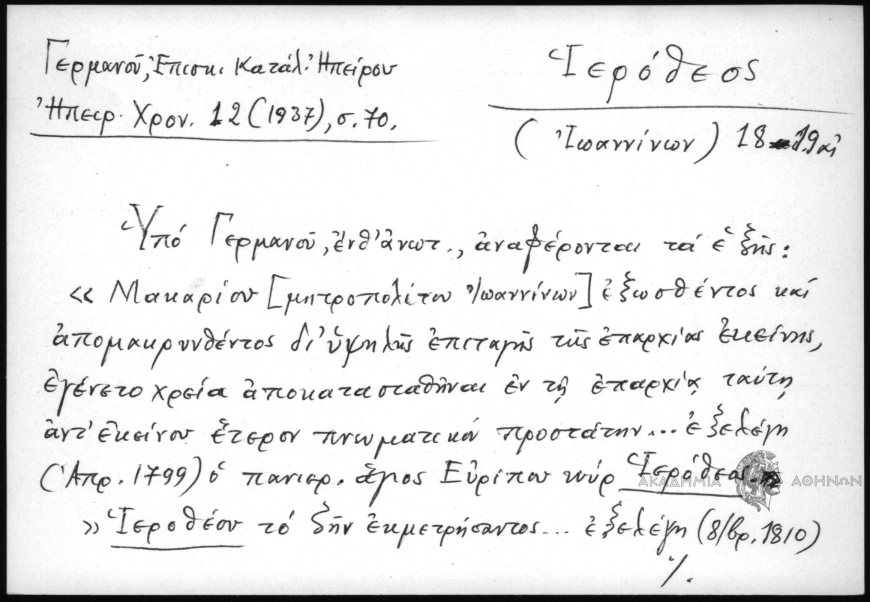 Γερμανοῦ, Ἐπισκ. Κατάλ. Ἠπείρου
Ἠπειρ. Χρον. 12 (1937), σ. 70.
Ἱερόθεος
(Ἰωαννίνων) 18-19 αἰ
Ὑπό Γερμανοῦ, ἐνθ' ἀνωτ., ἀναφέρονται τά ἑξῆς:
« Μακαρίου [μητροπολίτου Ἰωαννίνων] ἐξωσθέντος καί
ἀπομακρυνθέντος δι' ὑψηλῆς ἐπιταγῆς τῆς ἐπαρχίας ἐκείνης,
ἐγένετο χρεία ἀποκατασταθῆναι ἐν τῇ ἐπαρχίᾳ ταύτῃ
ἀντ' ἐκείνου ἕτερον πνευματικόν προστάτην... ἐξελέγη
(Ἀπρ. 1799) ὁ πανιερ. ἅγιος Εὐρίπου κύρ Ἱερόθεος.
ΑΚΑΔΗΜΙΑ ΑΘΗΝΩΝ
» Ἱεροθέου τό ζῆν ἐκμετρήσαντος... ἐξελέγη (8/βρ. 1810)
·/.